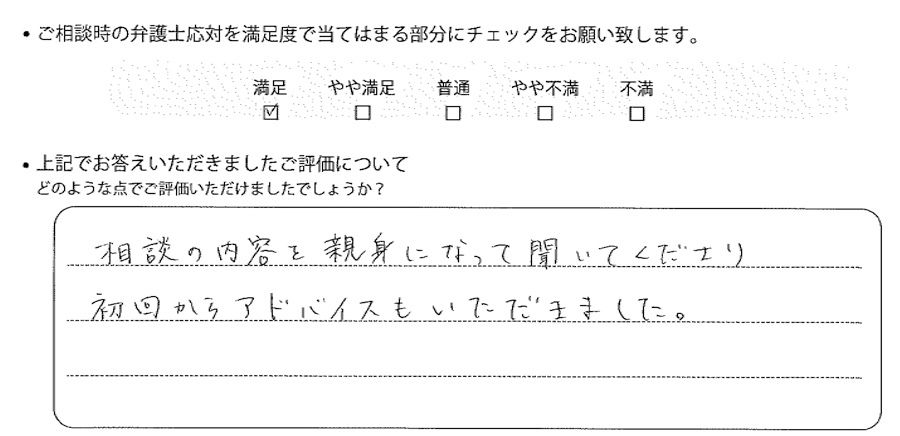 • ご相談時の弁護士応対を満足度で当てはまる部分にチェックをお願い致します。
満足 やや満足 普通 やや不満 不満
☑ ☐ ☐ ☐ ☐
• 上記でお答えいただきましたご評価について
どのような点でご評価いただけましたでしょうか？
相談の内容を親身になって聞いてくださり
初回からアドバイスもいただきました。